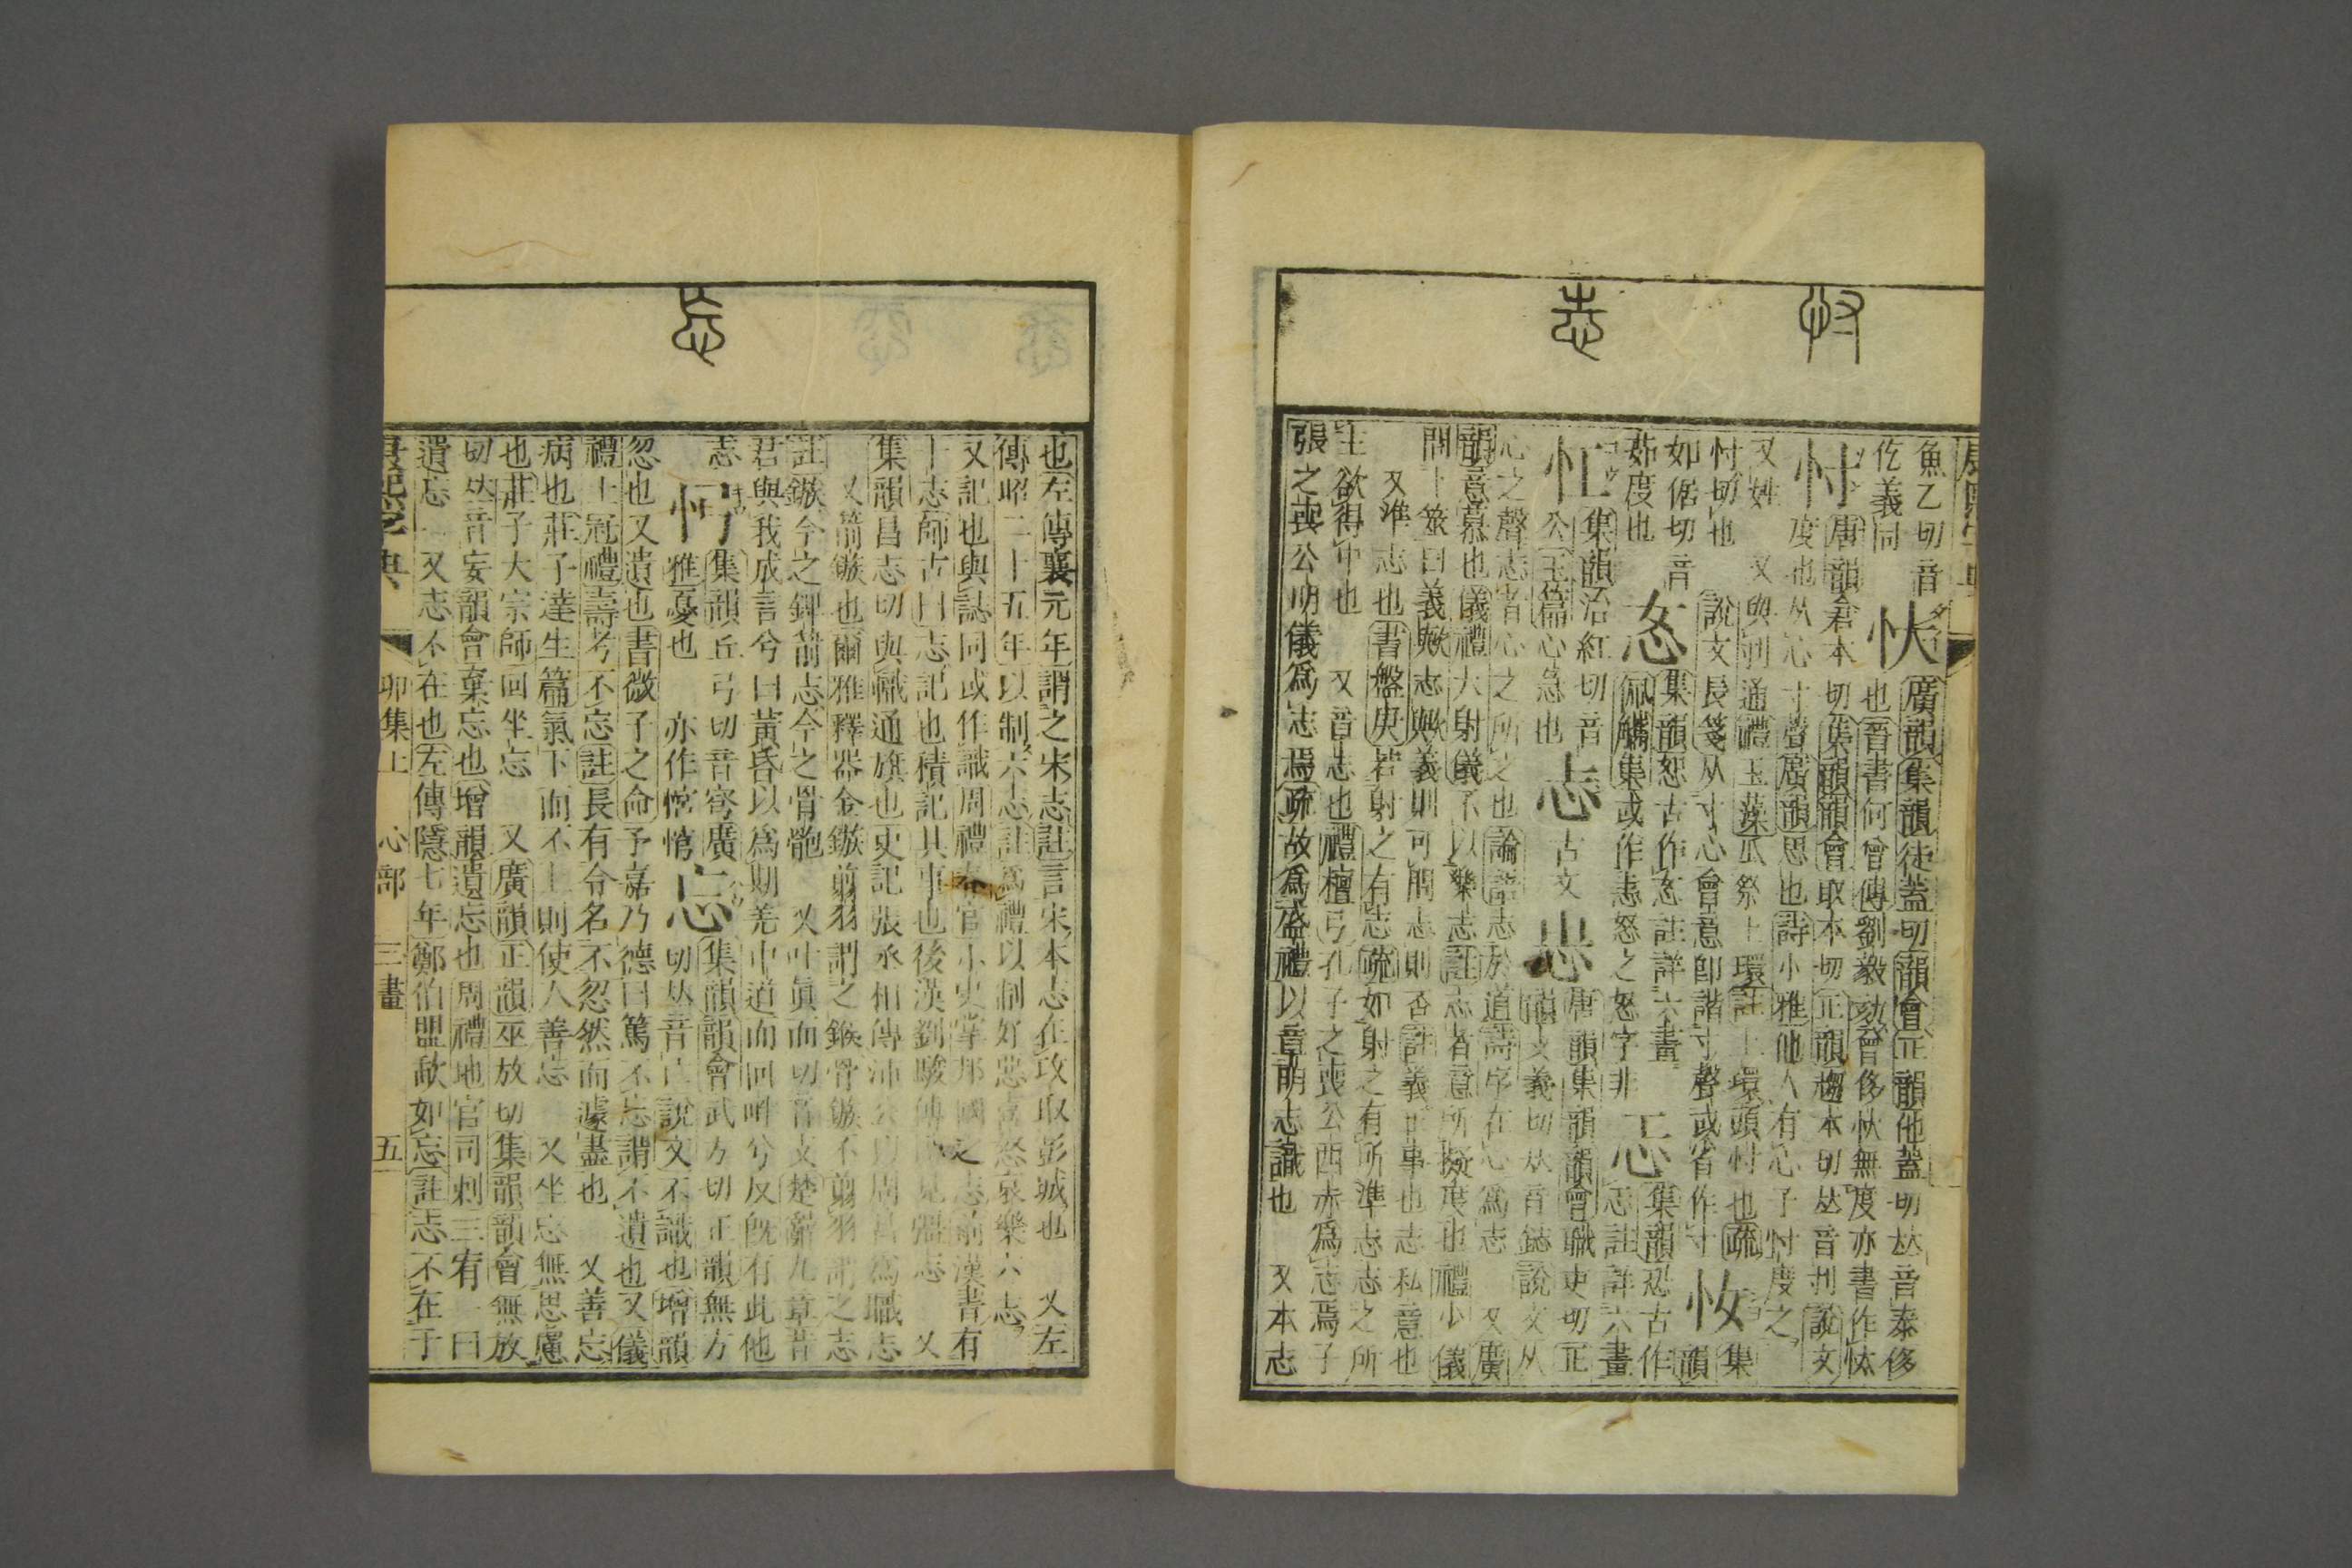 魚乙切音
仡義同
忕
廣韻集韻徒蓋切韻會正韻他蓋切𠀤音泰侈
也晉書何曾傳劉毅劾曾侈忕無度亦書作忲
忖
唐韻倉本切集韻韻會取本切正韻趨本切𠀤音刌說文
度也从心寸聲廣韻思也詩小雅他人有心予忖度之
又姓 又與刌通禮玉藻瓜祭上環註上環頭忖也疏
忖切也 說文長箋从寸心會意卽諧寸聲或省作寸
集
韻
如倨切音
茹度也
㣽
集韻恕古作㣽註詳六畫
佩觿集或作恚怒之怒字非
集韻恐古作
註詳六畫
集韻沽紅切音
公玉篇心急也
志
古文
唐韻集韻韻會職吏切正
韻支義切𠀤音鋕說文从
心之聲志者心之所之也論語志於道詩序在心爲志 又廣
韻意慕也儀禮大射儀不以樂志註志者意所擬度也禮少儀
問卜筮曰義歟志歟義則可問志則否註義正事也志私意也
又準志也書盤庚若射之有志疏如射之有所準志志之所
主欲得中也 又音志也禮檀弓孔子之喪公西赤爲志焉子
張之喪公明儀爲志焉疏故爲盛禮以章明志識也 又本志
也左傳襄元年謂之宋志註言宋本志在攻取彭城也 又左
傳昭二十五年以制六志註爲禮以制好惡喜怒哀樂六志
又記也與誌同或作識周禮春官小史掌邦國之志前漢書有
十志師古曰志記也積記其事也後漢劉駿傳 又
集韻昌志切與幟通旗也史記張丞相傳沛公以周昌爲職志
又箭鏃也爾雅釋器金鏃翦羽謂之鍭骨鏃不翦羽謂之志
註鏃今之錍箭志今之骨骲 又叶眞而切音支楚辭九章昔
君與我成言兮曰黃昏以爲期羌中道而回畔兮反旣有此他
志
集韻丘弓切音穹廣
雅憂也 亦作悾悺
忘
集韻韻會武方切正韻無方
切𠀤音亡說文不識也增韻
忽也又遺也書微子之命予嘉乃德曰篤不忘謂不遺也又儀
禮士冠禮壽考不忘註長有令名不忽然而遽盡也 又善忘
病也莊子達生篇氣下而不上則使人善忘 又坐忘無思慮
也莊子大宗師回坐忘 又廣韻正韻巫放切集韻韻會無放
切𠀤音妄韻會棄忘也增韻遺忘也周禮地官司刺三宥一曰
遺忘 又志不在也左傳隱七年鄭伯盟歃如忘註志不在于
卯集上 心部 三畫 五